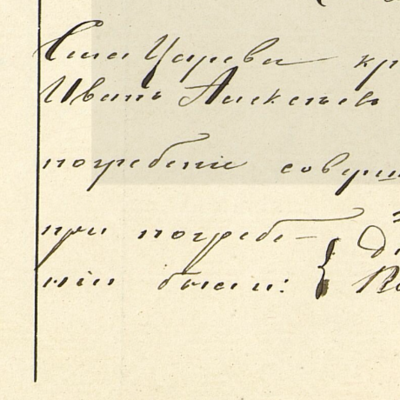 Села Царева кр
Иванъ Алексѣевъ
погребеніе соверш
при погребе-
ніи были: {